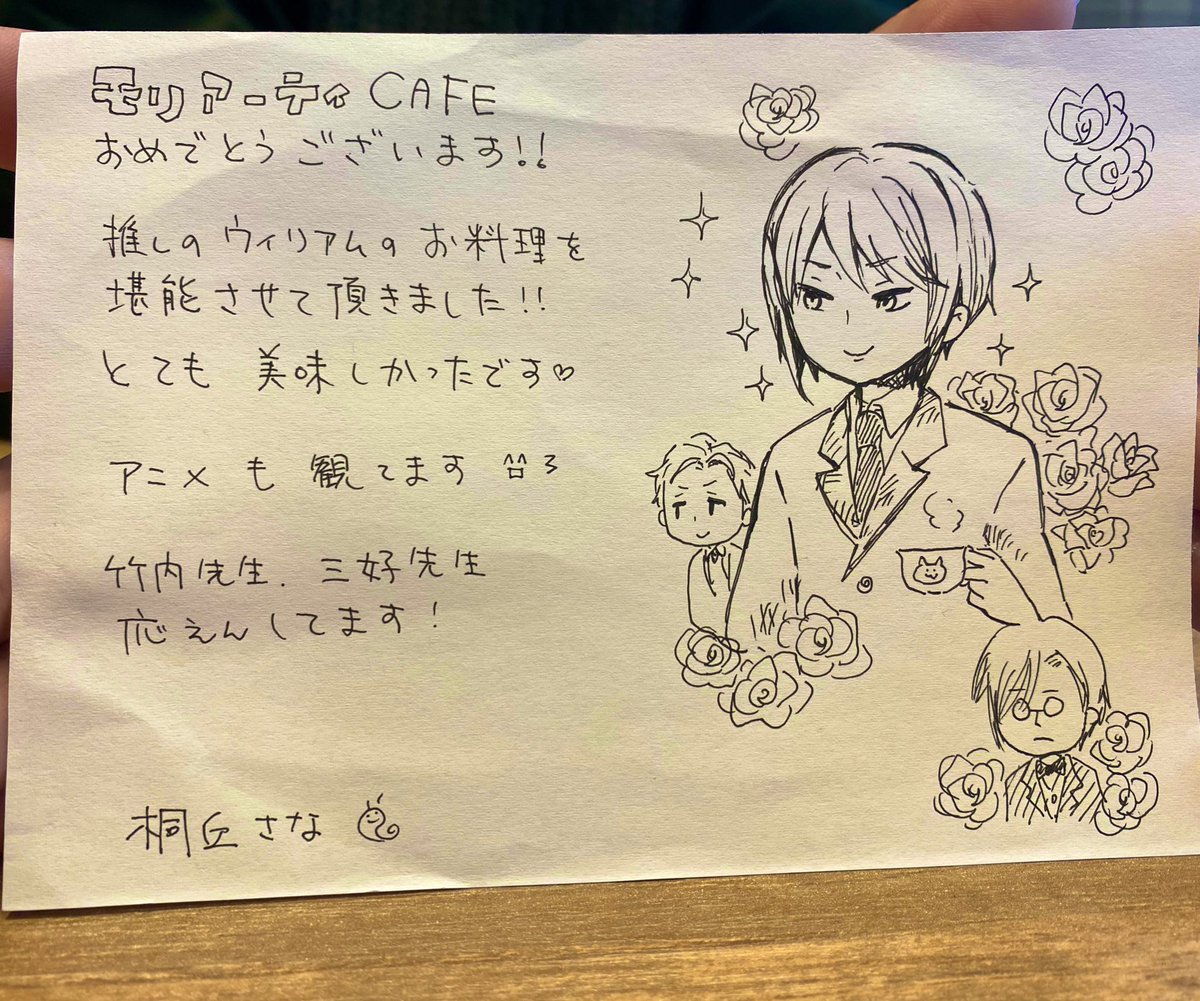 モリアーティCAFE
おめでとうございます!!
推しのウィリアムのお料理を
堪能させて頂きました!!
とても美味しかったです♡
アニメも観てます
竹内先生.三好先生
応えんしてます!
桐丘さな